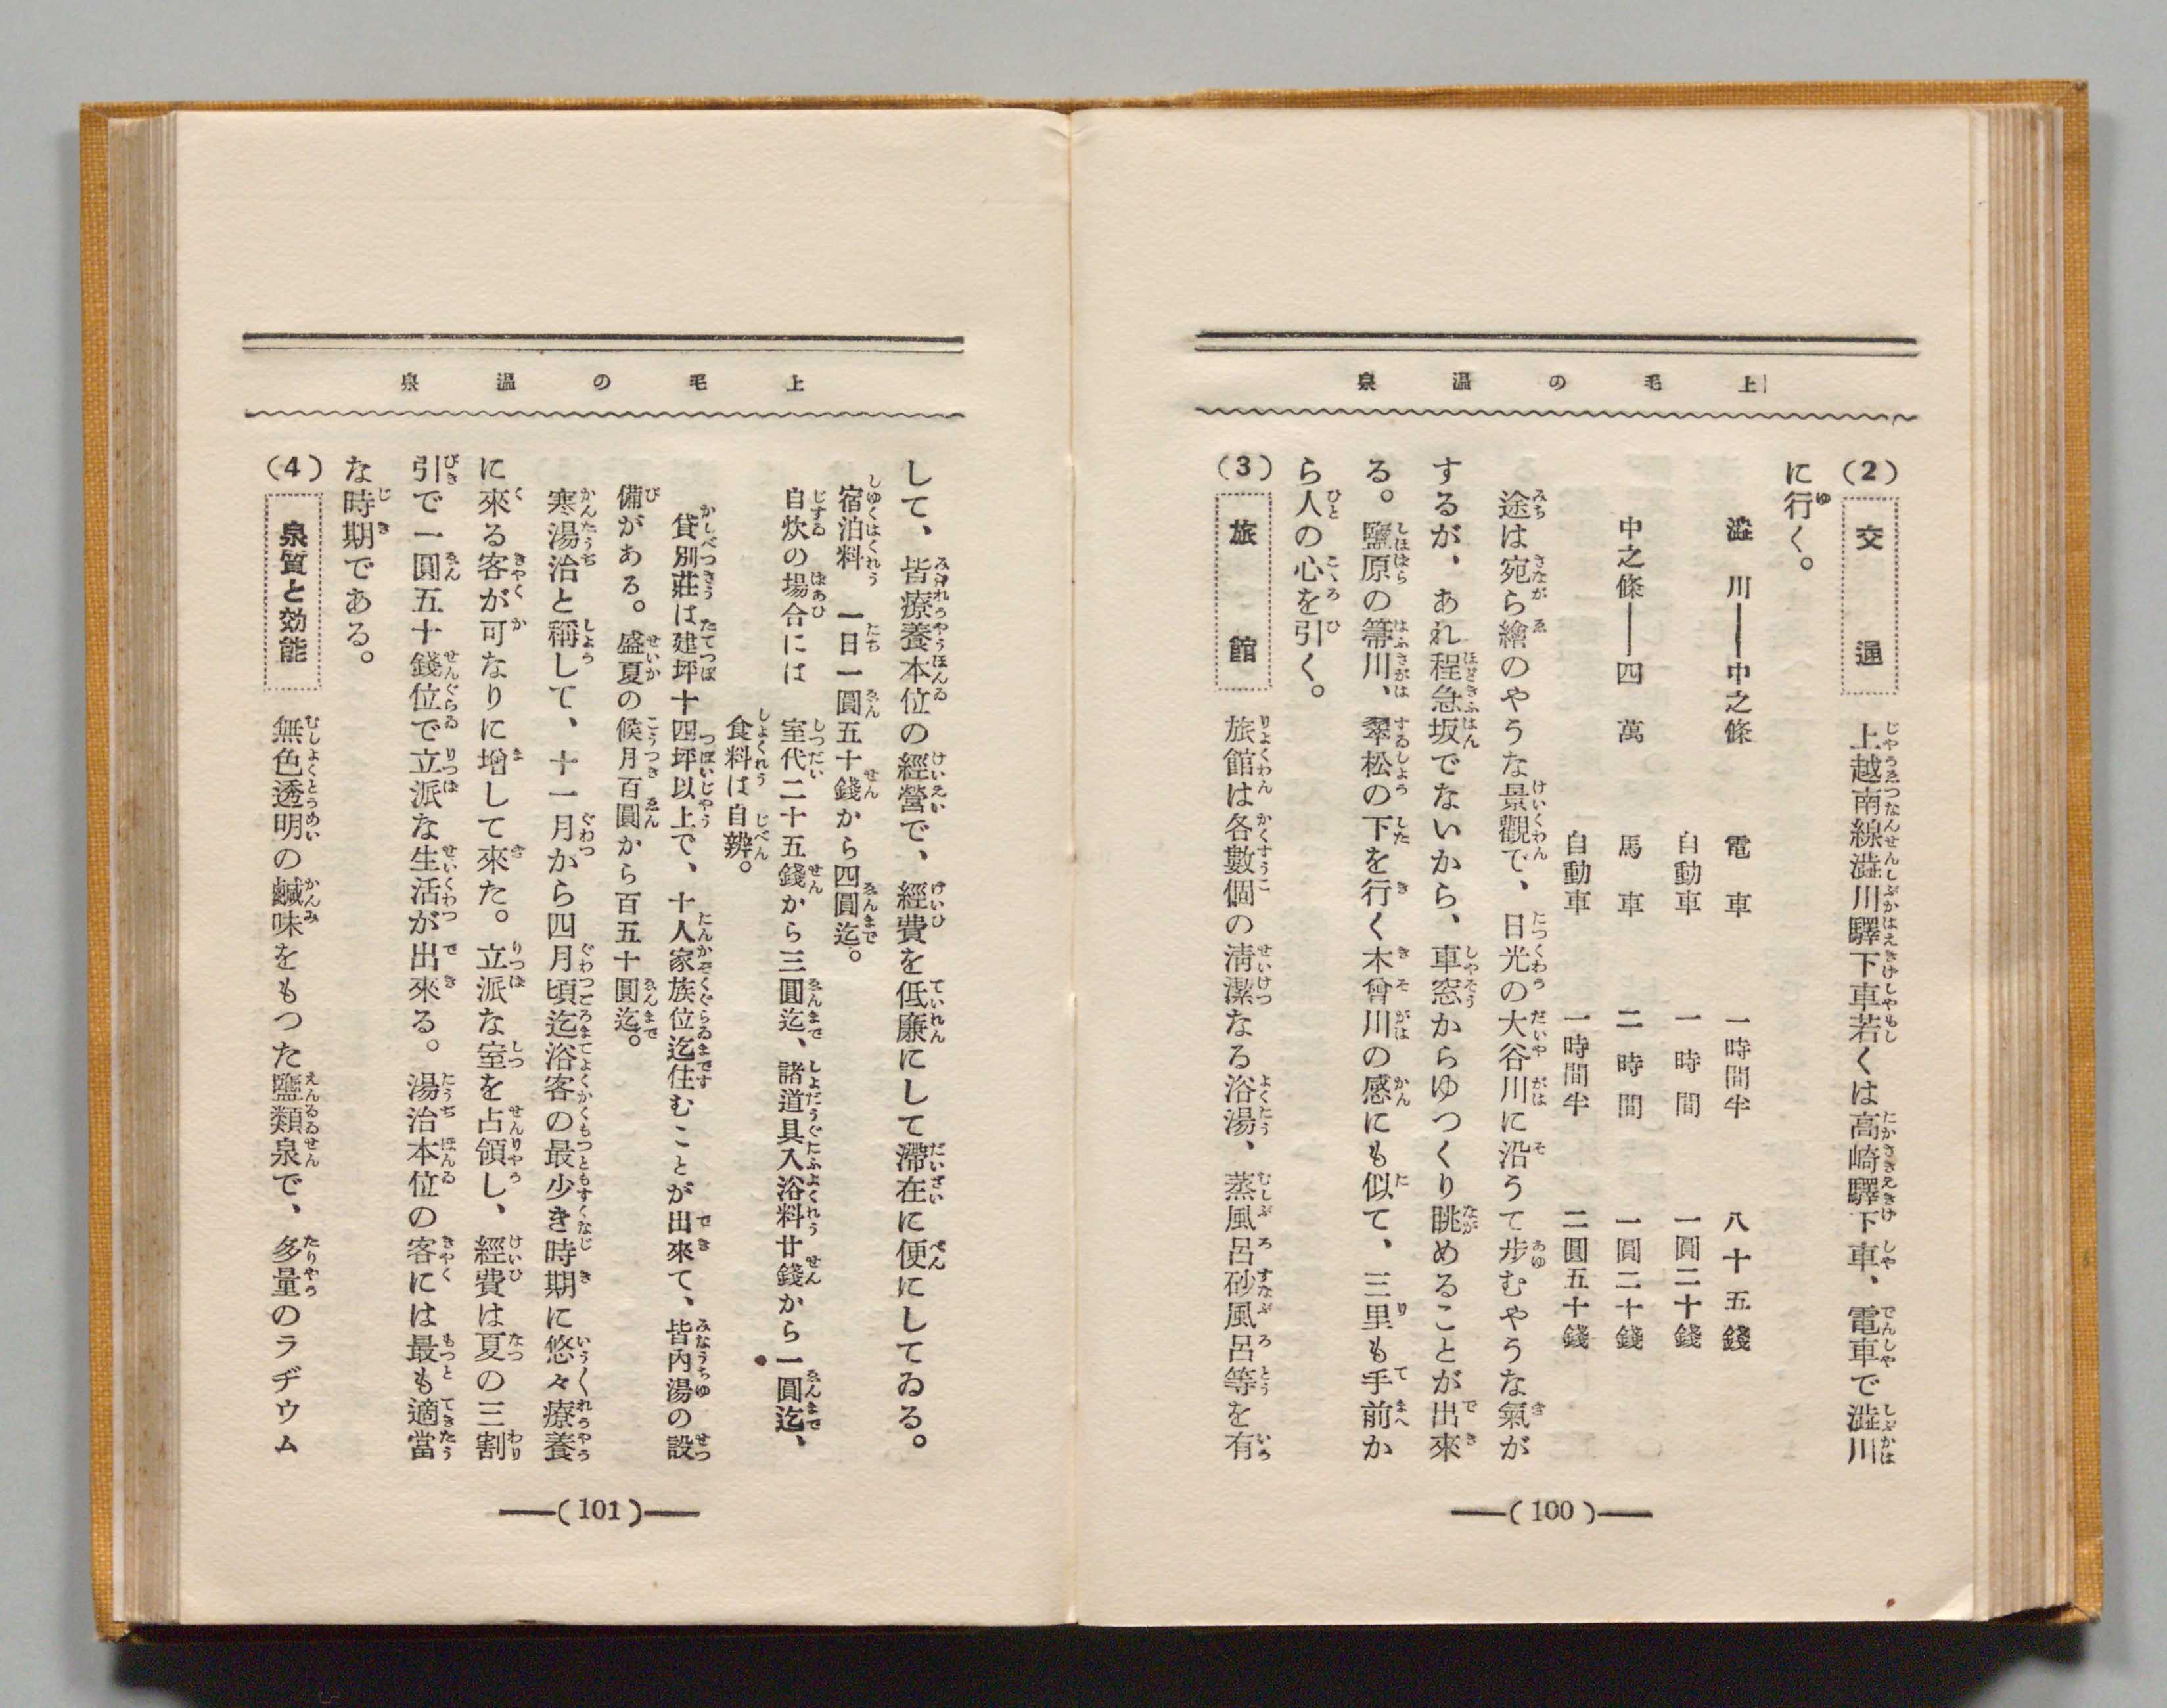 上毛の温泉
(2) 交通 上越南線澁川驛下車若くは高崎驛下車、電車で澁川
に行く。
澁川――中之條 電車 一時間半 八十五錢
自動車 一時間 一圓二十錢
中之條――四萬 馬車 二時間 一圓二十錢
自動車 一時間半 二圓五十錢
途は宛ら繪のやうな景觀で、日光の大谷川に沿うて歩むやうな氣が
するが、あれ程急坂でないから、車窓からゆつくり眺めることが出來
る。鹽原の箒川、翠松の下を行く木曾川の感にも似て、三里も手前か
ら人の心を引く。
(3) 旅館 旅館は各數個の淸潔なる浴湯、蒸風呂砂風呂等を有
―(100)―
上毛の温泉
して、皆療養本位の經營で、經費を低廉にして滯在に便にしてゐる。
宿泊料 一日一圓五十錢から四圓迄。
自炊の場合には 室代二十五錢から三圓迄、諸道具入浴料廿錢から一圓迄、
食料は自辨。
貸別莊は建坪十四坪以上で、十人家族位迄住むことが出來て、皆内湯の設
備がある。盛夏の候月百圓から百五十圓迄。
寒湯治と稱して、十一月から四月頃迄浴客の最少き時期に悠々療養
に來る客が可なりに増して來た。立派な室を占領し、經費は夏の三割
引で一圓五十錢位で立派な生活が出來る。湯治本位の客には最も適當
な時期である。
(4) 泉質と効能 無色透明の鹹味をもつた鹽類泉で、多量のラヂウム
―(101)―